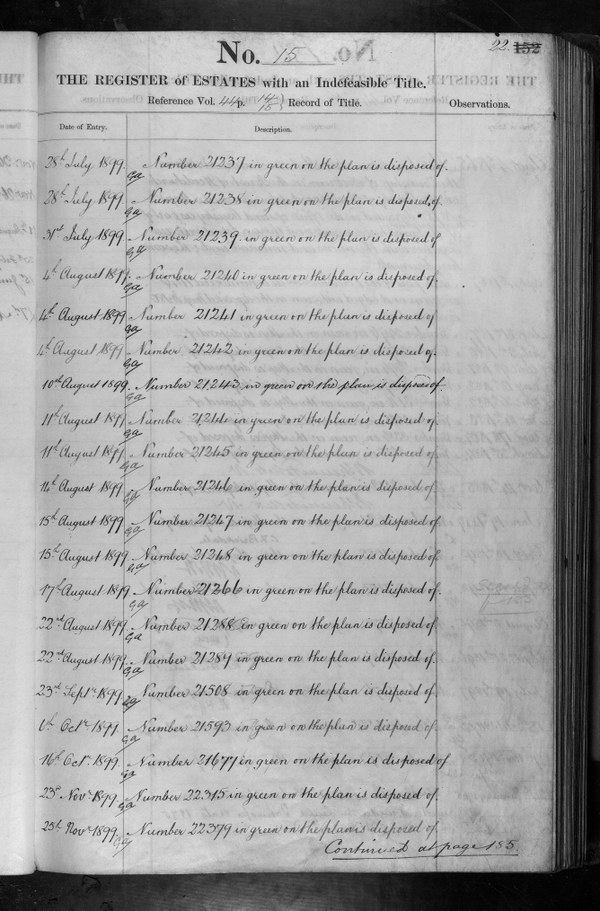 22. 152
No. 15
THE REGISTER of ESTATES with an Indefeasible Title.
Reference Vol. 44 p. 14 15 Record of Title.
Observations.
Date of Entry. Description.
28th July 1899. Number 21237 in green on the plan is disposed of.
28th July 1899. Number 21238 in green on the plan is disposed of.
31st July 1899. Number 21239 in green on the plan is disposed of
4th August 1899. Number 21240 in green on the plan is disposed of.
4th August 1899. Number 21241 in green on the plan is disposed of
4th August 1899. Number 21242 in green on the plan is disposed of.
10th August 1899. Number 21243 in green on the plan is disposed of.
11th August 1899. Number 21244 in green on the plan is disposed of.
11th August 1899. Number 21245 in green on the plan is disposed of.
14th August 1899. Number 21246 in green on the plan is disposed of.
15th August 1899. Number 21247 in green on the plan is disposed of.
15th August 1899. Number 21248 in green on the plan is disposed of.
17th August 1899. Number 21266 in green on the plan is disposed of.
22nd August 1899. Number 21288 in green on the plan is disposed of.
22nd August 1899. Number 21289 in green on the plan is disposed of.
23rd Septr. 1899. Number 21508 in green on the plan is disposed of.
Octr. 1899 Number 21593 in green on the plan is disposed of.
16th Octr. 1899. Number 21677 in green on the plan is disposed of
Novr. 1899. Number 22315 in green on the plan is disposed of.
25th Novr. 1899. Number 22379 in green on the plan is disposed of.
Continued at page 155.